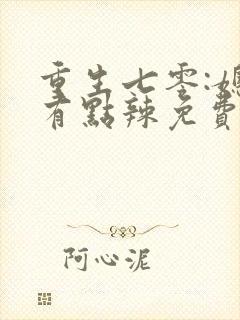 重生七零:媳
有點辣免費
阿心泥